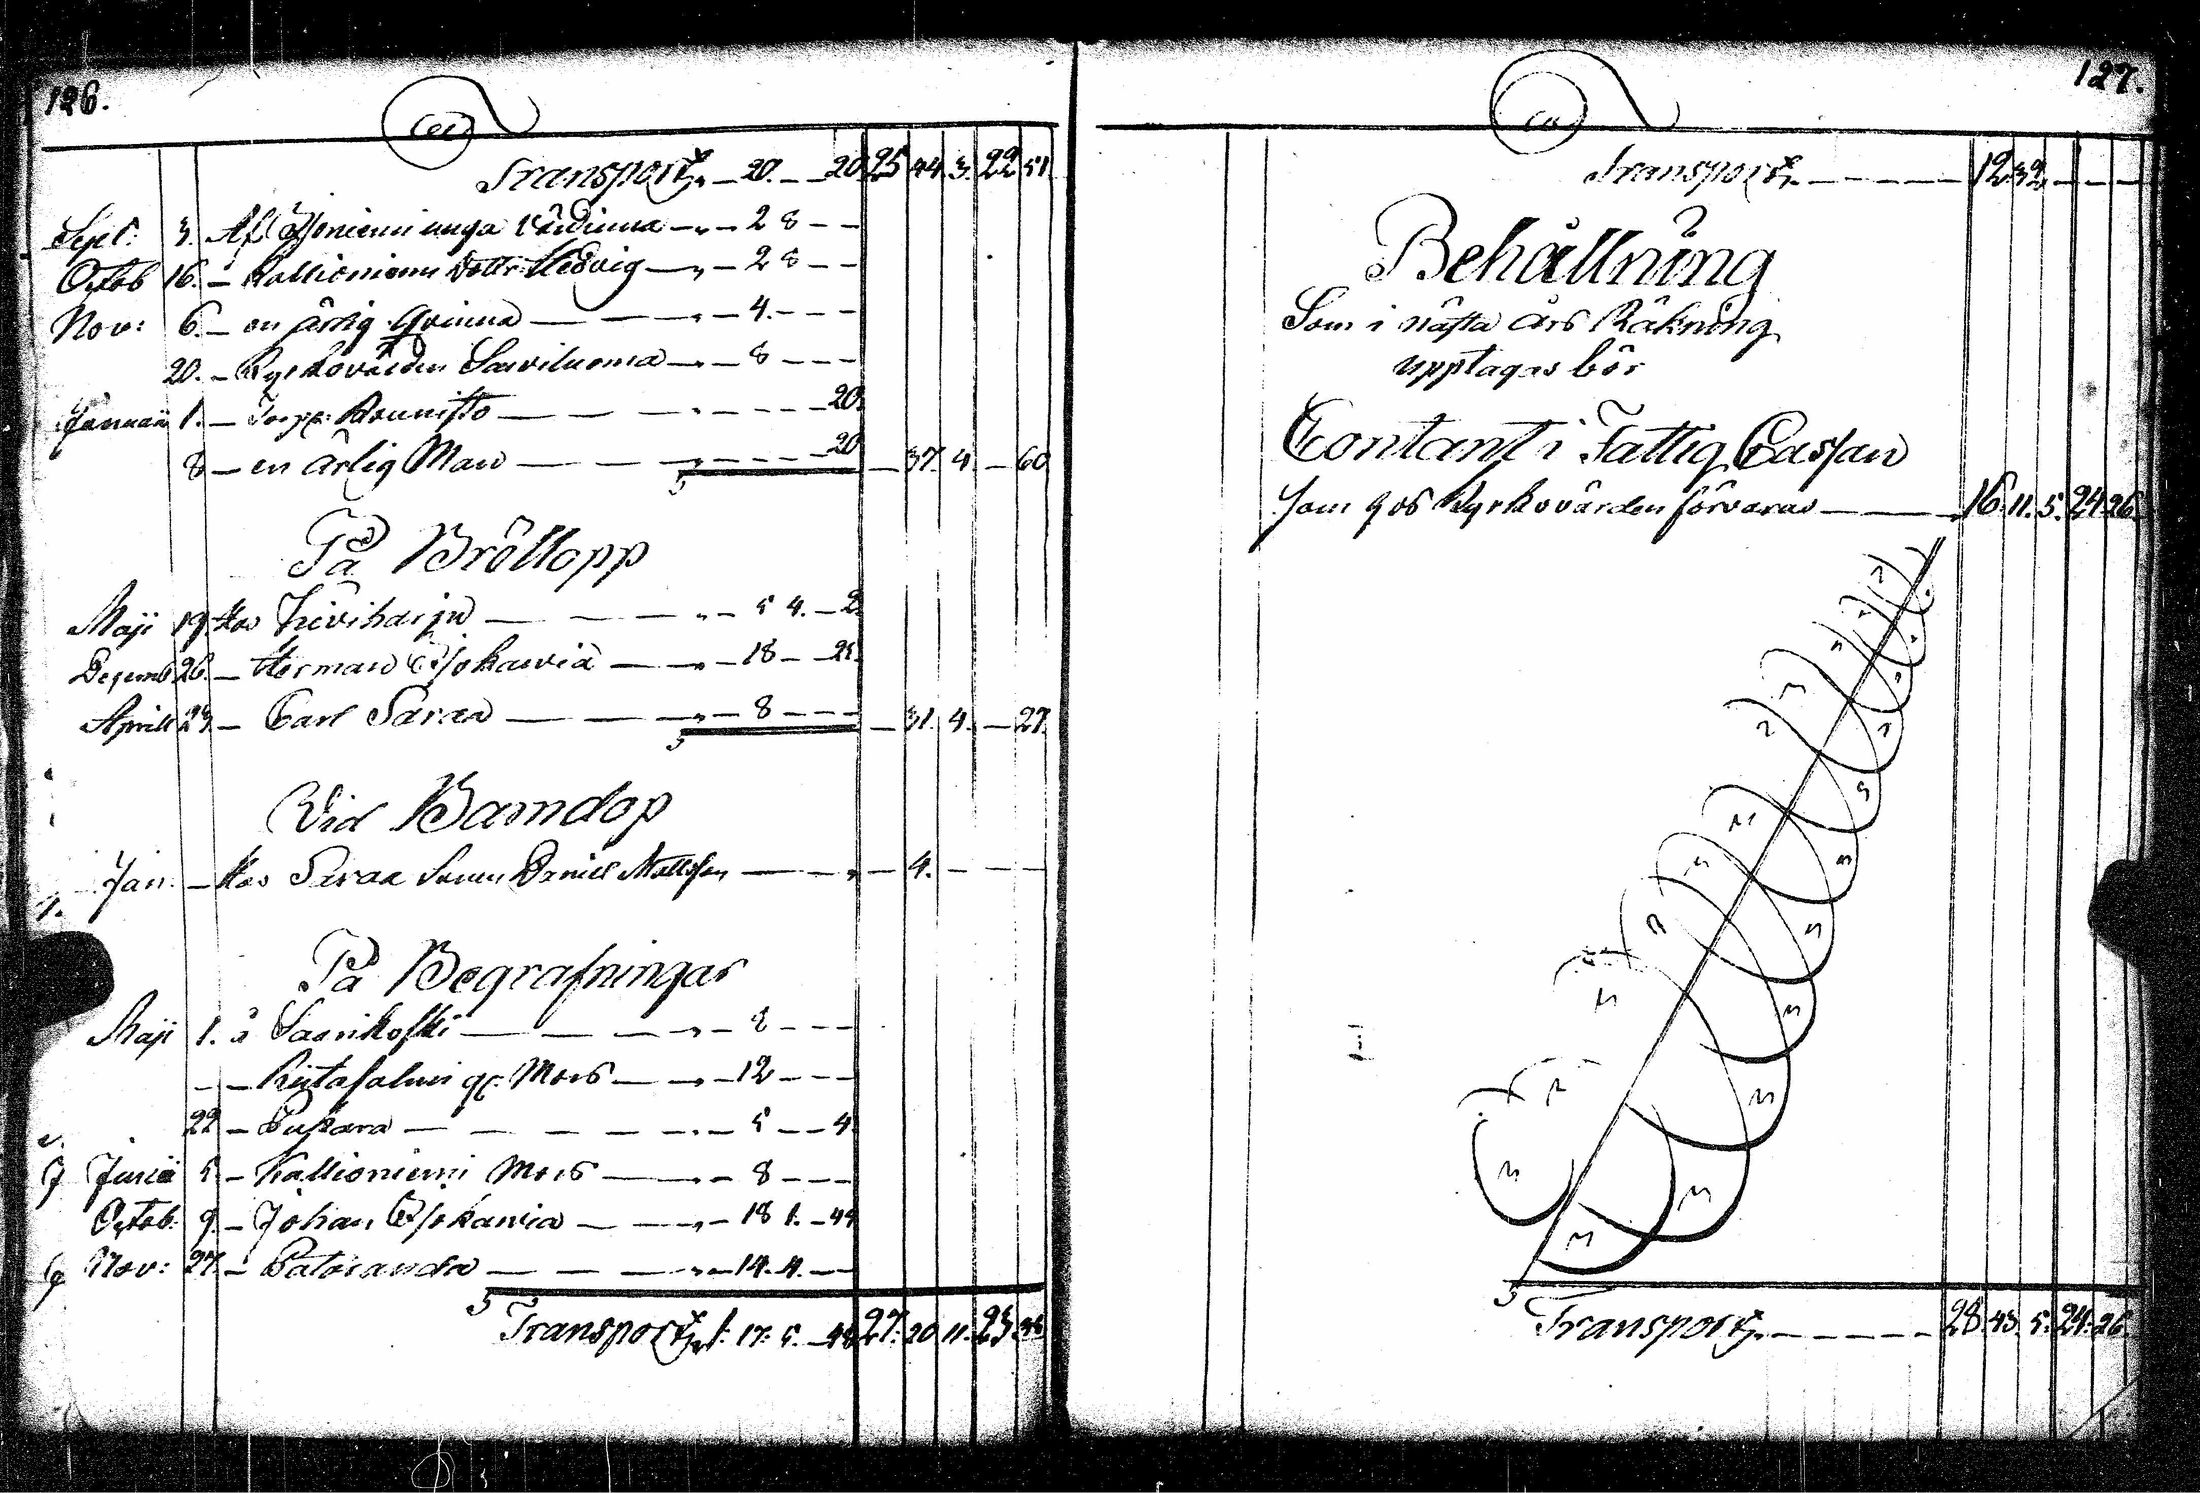 126.
Transport. — 20. — 20. 25 44 3. 22 51
Sept: 3. Af unga värdinna — " — 2 8 — —
Octob 16. — Kallioniemi Dottr Hedvig — " — 2 8 — —
Nov: 6. — en ärlig Qvinna — — " — 4. — — —
20. — Kyrkovärden Saviluoma — " — 8 — — —
Januarii 1. — Kaunisto — — — " — — — 20.
8 — en ärlig Man — — " — — — 20 — 37. 4. — 60
På Bröllopp
Maji 19. Hos — — " — 5 4. — 2.
Decemb 26. — Herman — " — 18 — — 25.
Aprill 23. — Carl Saraa — — " — 8 — — — — 31. 4. — 27.
Vid Barndop
Jan. — Hos Saraa Sonen Daniel Mattsson — — " — 4. — — —
På Begrafningar
Maji 1. å Saarikoski — — — " — 8 — — —
— — Mors — " — 12 — — —
22 — — — — — " — 5 — — 4
Junii 5. — Kallioniemi Mors — " — 8 — — —
Octob. 9. — Johan — " — 18 1. — 44
Nov: 27. — Patoranda — — " — 14. 4. — —
Transport. 1. 17. 5. — 48 27. 20 11. 23.
127.
Transport. — — — — 12 32 — — —
Behållning
Som i nästa års Räkning
upptagas bör
Contant i Fattig Cassan
som hos Kyrkovärden förvaras — — 16. 11. 5. 24 26
Transport. — — — — 28. 43. 5. 24. 26.